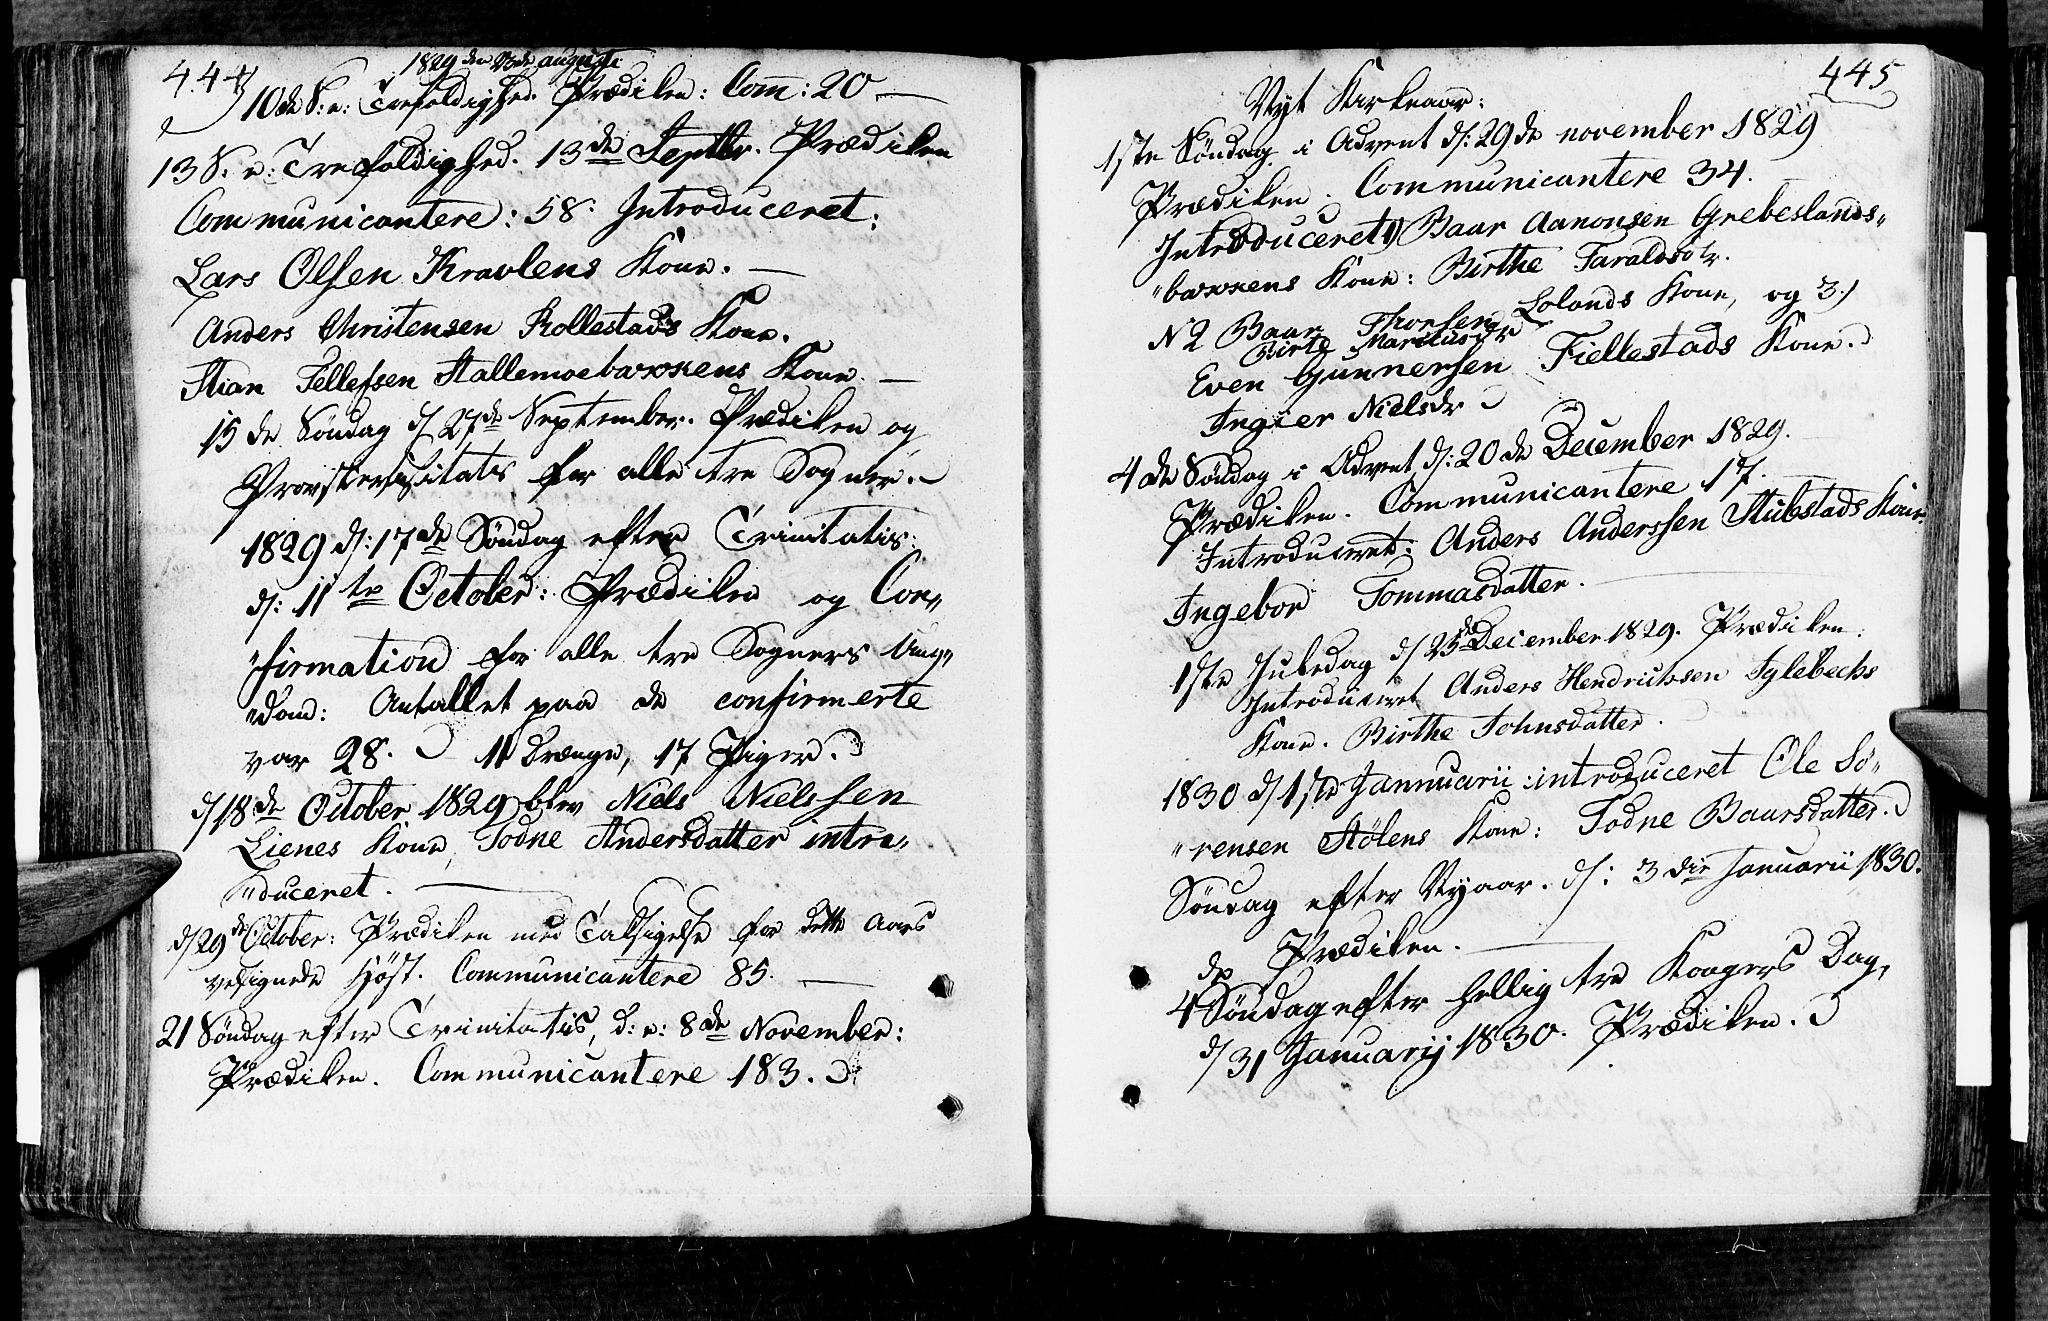 444
1829 den 23de augusti
10de S: e: Trefoldighed. Prædiken: Com̅: 20 —
13 S: e: Trefoldighed. 13de Septbr. Prædiken
Communicantere: 58. Introduceret:
Lars Olsen Kravlens Kone. —
Anders Christensen Rollestads Kone.
Stian Tellefsen Stallemoebaxxens Kone. —
15de Søndag d/ 27de September. Prædiken og
Provstevisitats for alle tre Sogner. —
1829 d/: 17de Søndag efter Trinitatis:
d/: 11te October: Prædiken og Con„
„firmation for alle tre Sogners Ung„
„dom: Antallet paa de confirmerte
var 28. 11 Drænge, 17 Piger.
d/18de October 1829 blev Niels Nielssen
Lienes Kone, Todne Andersdatter intro„
„duceret. —
d/29de October: Prædiken med Taksigelse for dette Aars
velsignede Høst. Communicantere 85. —
21 Søndag efter Trinitatis, d: e: 8de November:
Prædiken. Communicantere 183.
445
Nyt Kirkeaar:
1ste Søndag i Advent d/: 29de november 1829
Prædiken. Communicantere 34.
Introduceret 1) Baar Aanonsen Grebeslands„
„baxxens Kone: Birthe Taraldsdtr.
N 2 Baar Thorsen Lolands Kone, og 3)
Birte Mariusdr
Even Gunnersen Fiellestads Kone.
Ingier Nielsdr
4de Søndag i Advent d/: 20de December 1829.
Prædiken. Communicantere 17.
Introduceret: Anders Anderssen Stubstads Kone
Ingebor Tommasdatter.
1ste Juledag d/ 25de December 1829. Prædiken:
Introduceret Anders Hendrichsen Iglebechs
Kone. Birthe Johnsdatter.
1830 d/ 1ste Jannuarii introduceret Ole Sø„
„rensen Stølens Kone: Todne Baarsdatter.
Søndag efter Nyaar. d/: 3die Januarii 1830.
Prædiken. —
4de Søndag efter hellig tre Kongers Dag,
d/ 31 Januarij 1830. Prædiken.